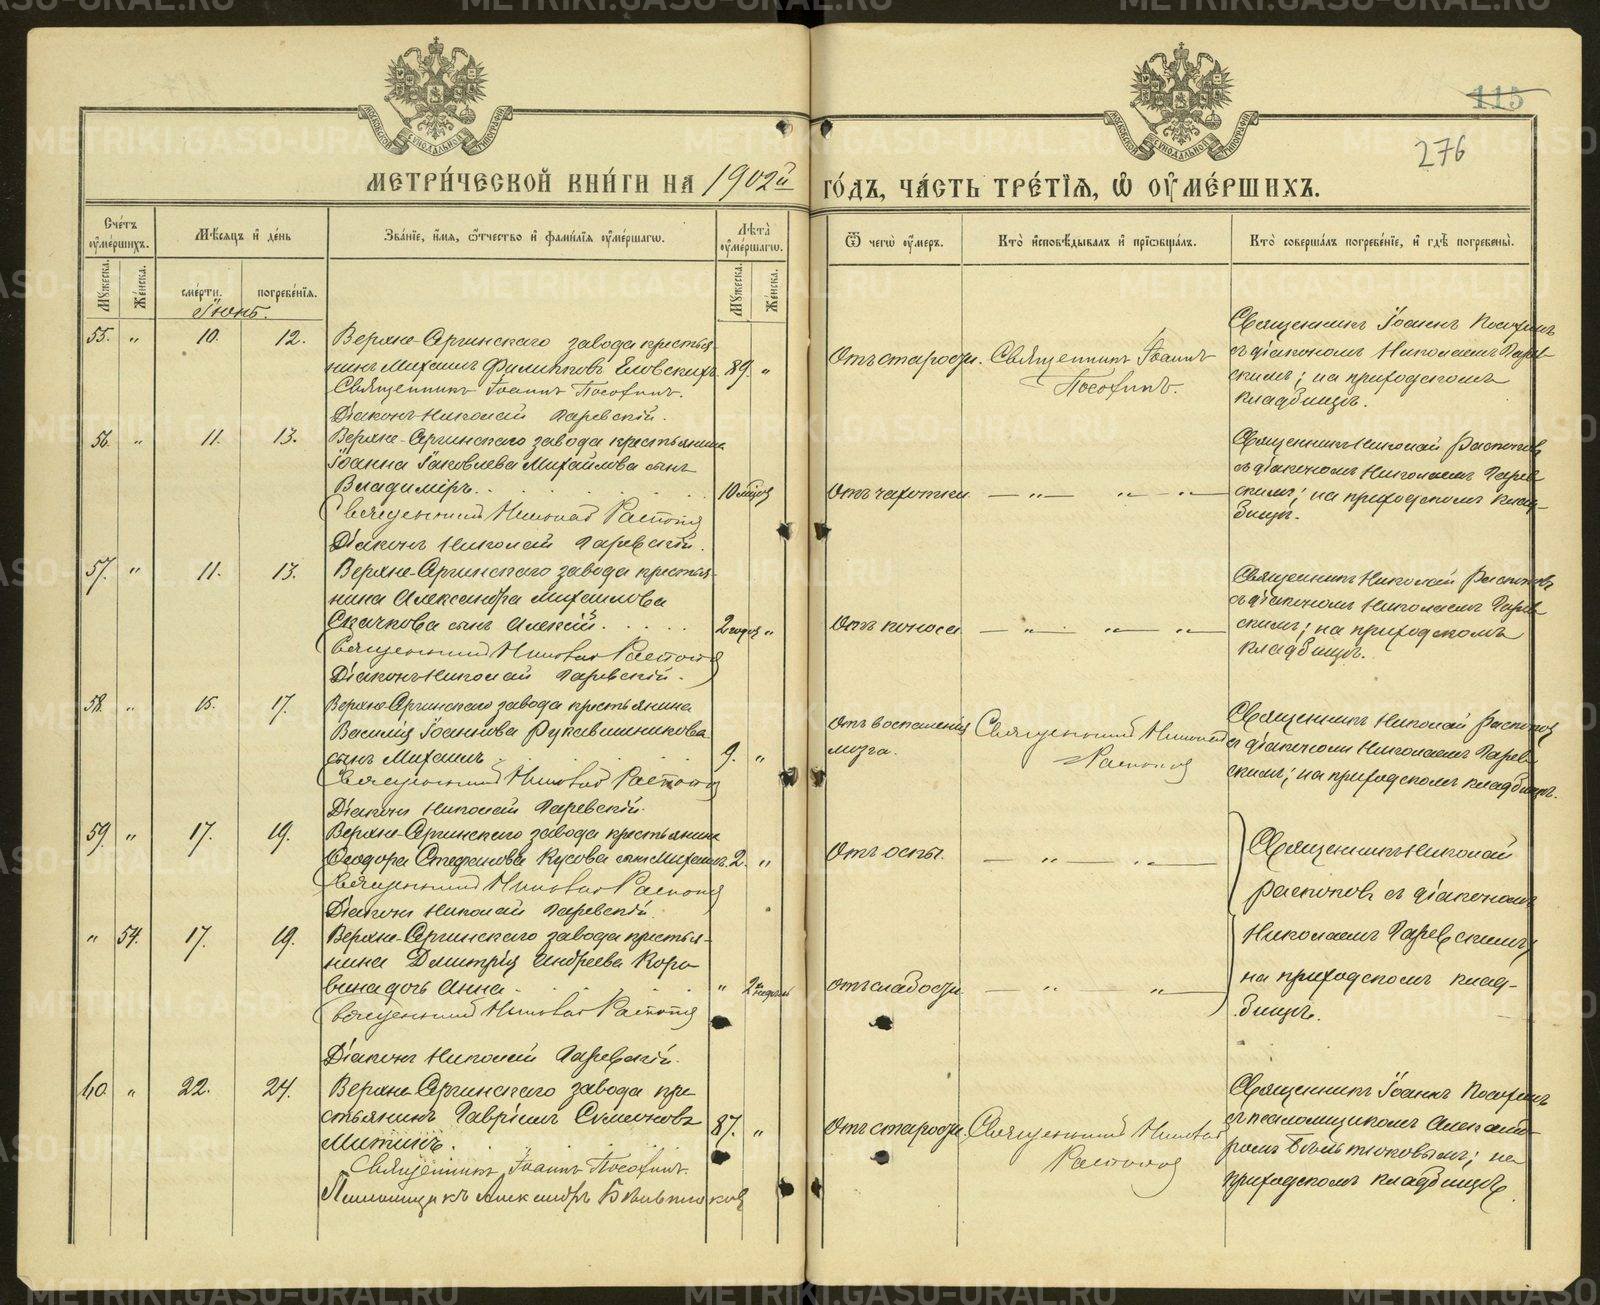 115
276
МЕТРИ́ЧЕСКОЙ КНИ́ГИ НА 1902й ГО́ДЪ, ЧА́СТЬ ТРЕ́ТІЯ, Ѡ҆ ОУ҆МЕ́РШИХЪ.
Сче́тъ оу҆ме́ршихъ.
Мѣ́сяцъ и҆ де́нь
Зва́нїе, и҆́мя, ѻ҆́тчество и҆ фами́лїя оу҆ме́ршагѡ.
Лѣ́та оу҆ме́ршагѡ.
Ѿ чегѡ̀ оу҆́меръ.
Кто̀ и҆сповѣ́дывалъ и҆ прїѡбща́лъ.
Кто̀ соверша́лъ погребе́нїе, и҆ гдѣ̀ погребены̀.
Мꙋ́жеска.
Же́нска.
сме́рти.
погребе́нїя.
Мꙋ́жеска.
Же́нска.
Іюнь.
55. „ 10. 12. Верхне-Сергинскаго завода крестья-
нинъ Михаилъ Филипповъ Еловскихъ 89. „
Священникъ Іоаннъ Посохинъ.
Діаконъ Николай Гаревскій.
Отъ старости. Священникъ Іоаннъ
Посохинъ.
Священникъ Іоаннъ Посохинъ
съ діакономъ Николаемъ Гарев-
скимъ; на приходскомъ
кладбищѣ.
56. „ 11. 13. Верхне-Сергинскаго завода крестьянина
Іоанна Іаковлева Михайлова сынъ
Владиміръ. 10 мѣсяц
Священникъ Николай
Діаконъ Николай Гаревскій.
Отъ чахотки — „ — „ — „ —
Священникъ Николай
съ діакономъ Николаемъ Гарев-
скимъ; на приходскомъ клад-
бищѣ.
57. „ 11. 13. Верхне-Сергинскаго завода крестья-
нина Александра Михаилова
Скачкова сынъ Алексій. 2 года „
Священникъ Николай
Діаконъ Николай Гаревскій.
Отъ поноса — „ — „ — „ —
Священникъ Николай
съ діакономъ Николаемъ Гарев-
скимъ; на приходскомъ
кладбищѣ.
58. „ 15. 17. Верхне-Сергинскаго завода крестьянина
Василія Іоаннова Рукавишникова
сынъ Михаилъ 9. „
Священникъ Николай
Діаконъ Николай Гаревскій.
Отъ воспаленія
мозга.
Священникъ Николай
Священникъ Николай
съ діакономъ Николаемъ Гарев-
скимъ; на приходскомъ кладбищѣ.
59. „ 17. 19. Верхне-Сергинскаго завода крестьянина
Ѳеодора Стефанова Кусова сынъ Михаилъ. 2. „
Священникъ Николай
Діаконъ Николай Гаревскій.
Отъ оспы. — „ — „ —
Священникъ Николай
съ діакономъ
Николаемъ Гаревскимъ;
на приходскомъ клад-
бищѣ.
„ 54. 17. 19. Верхне-Сергинскаго завода крестья-
нина Димитрія Андреева Коро-
вина дочь Анна. „ 2 недѣли
Священникъ Николай
Діаконъ Николай Гаревскій.
отъ слабости. — „ — „ —
60. „ 22. 24. Верхне-Сергинскаго завода кре-
стьянинъ Гавріилъ Симеоновъ
Митинъ. 87. „
Священникъ Іоаннъ Посохинъ.
Псаломщикъ Александръ
Отъ старости. Священникъ Николай
Священникъ Іоаннъ Посохинъ
съ псаломщикомъ Александ-
ромъ на
приходскомъ кладбищѣ.
METRIKI.GASO-URAL.RU